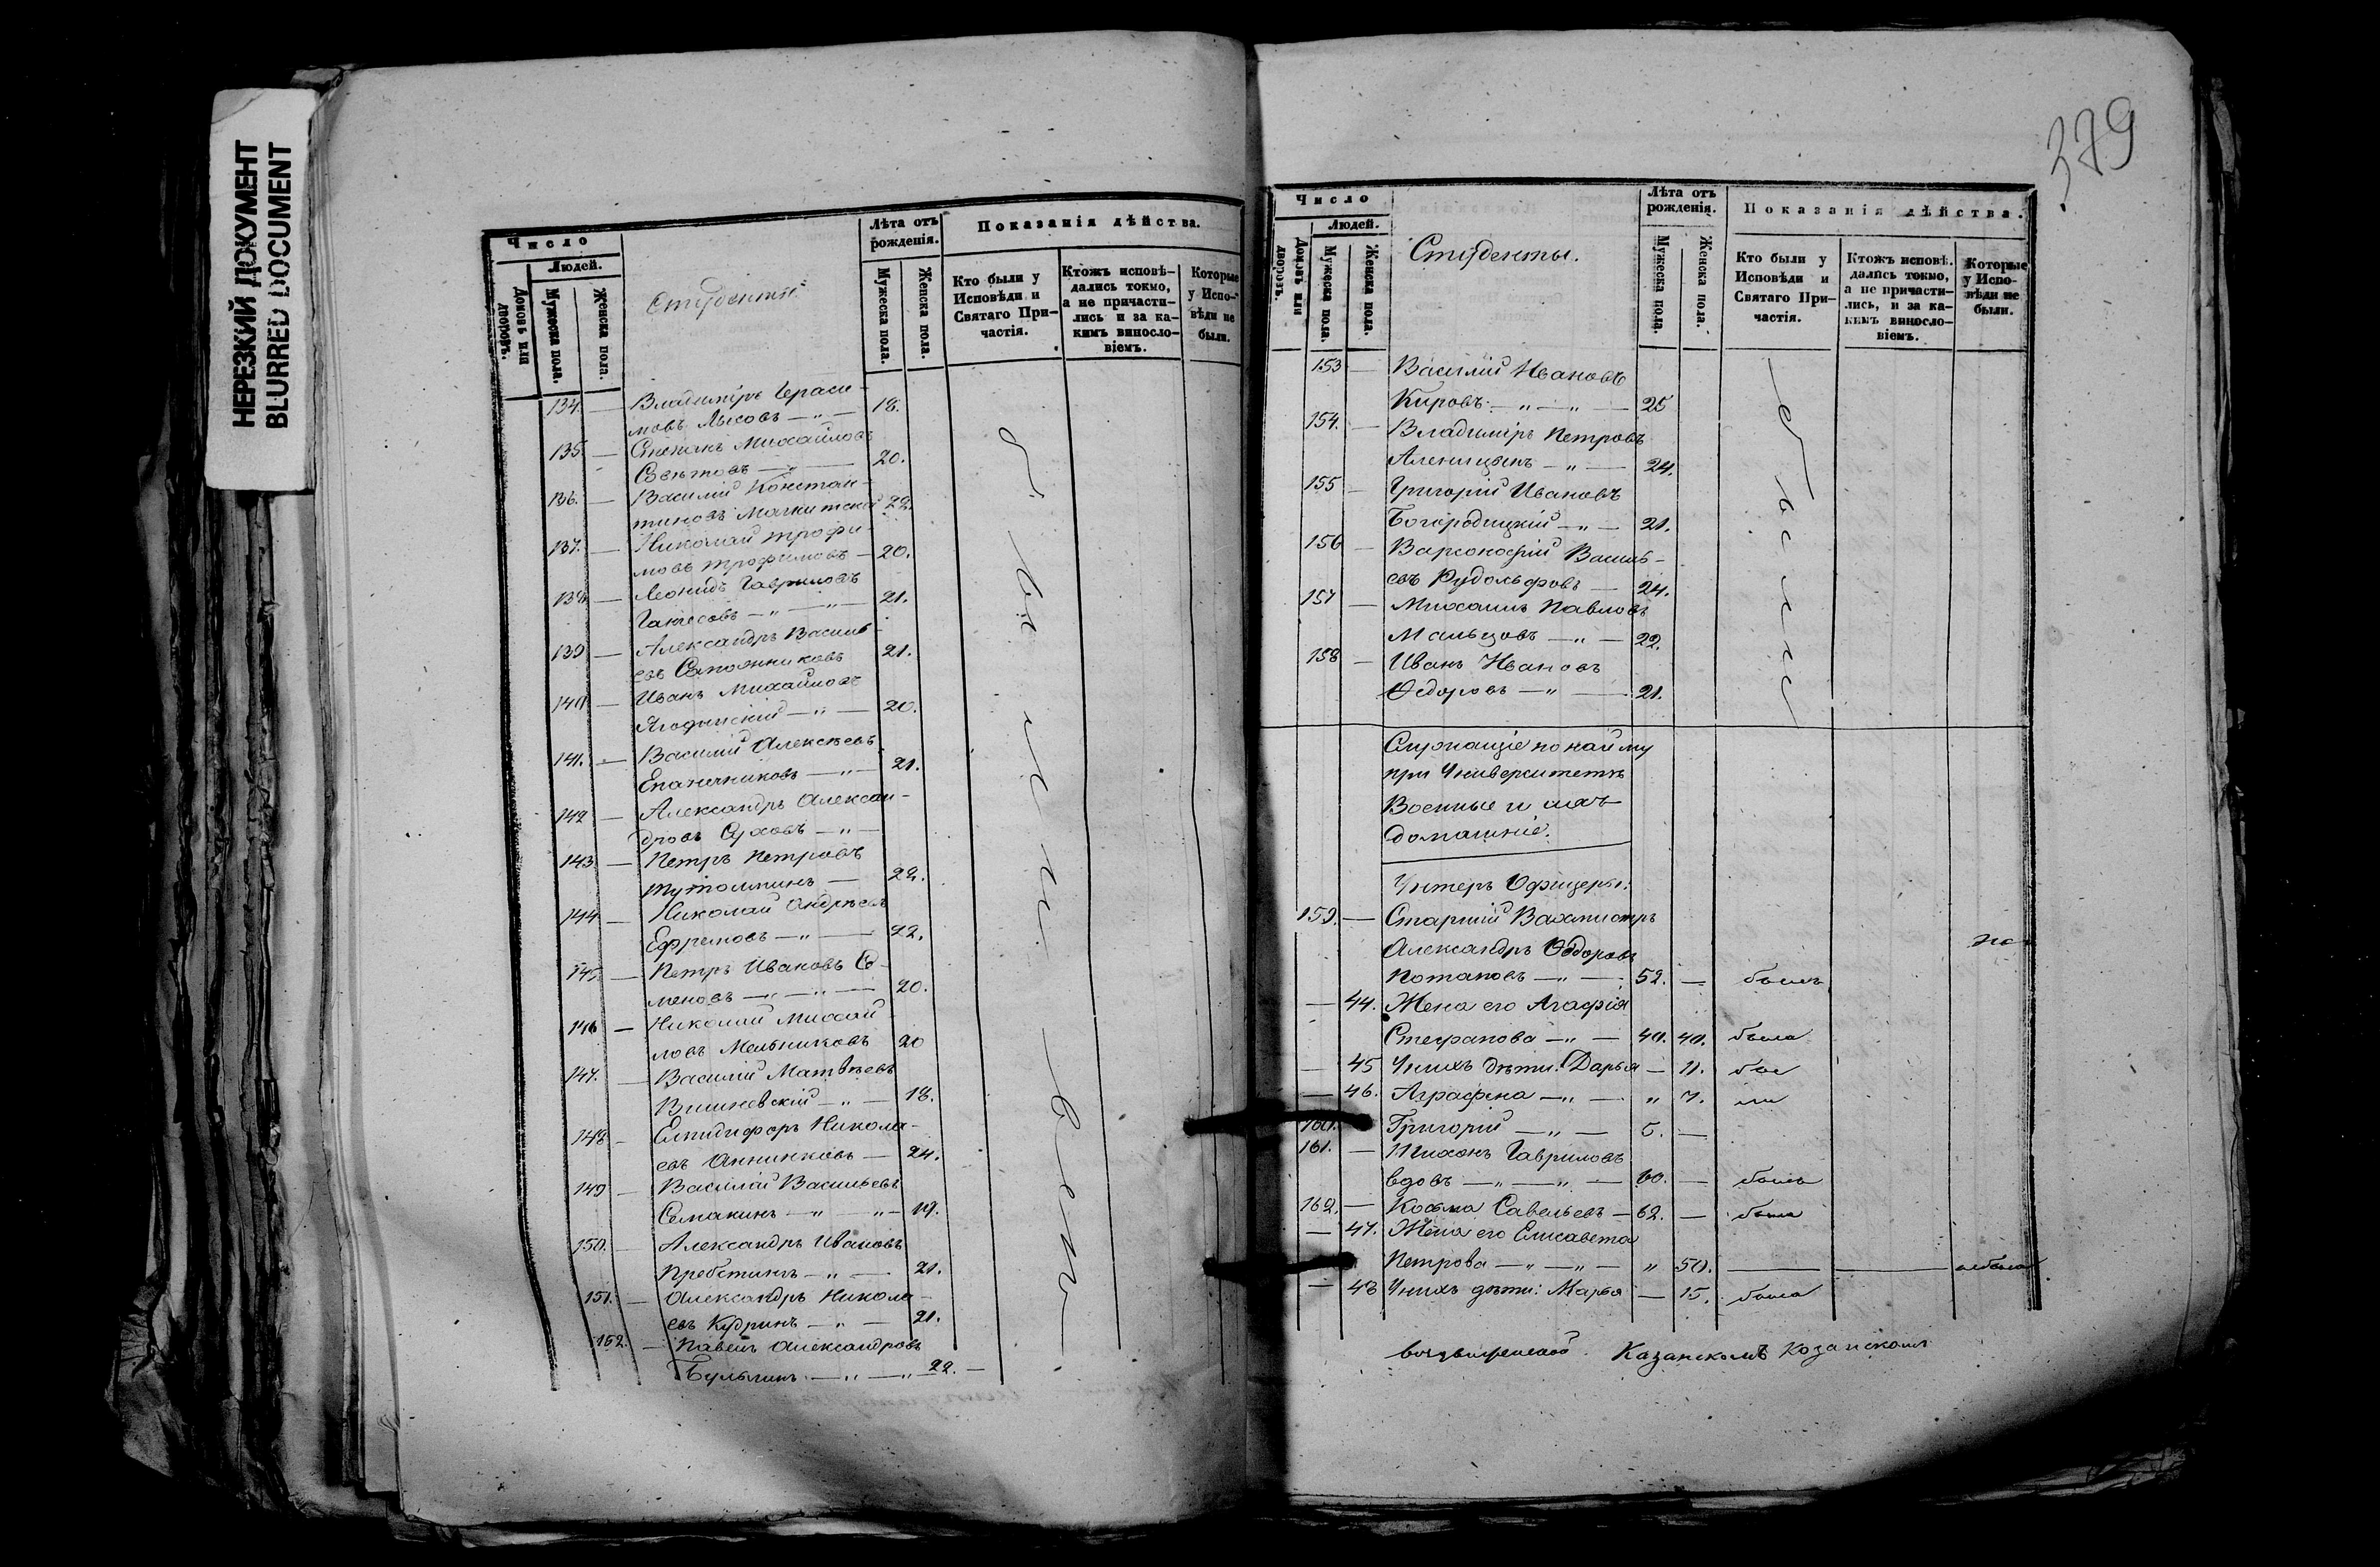 НЕРЕЗКИЙ ДОКУМЕНТ
BLURRED DOCUMENT
Число
Людей.
Домовъ или дворовъ.
Мужеска пола.
Женска пола.
Студенты.
Лѣта отъ рожденія.
Мужеска пола.
Женска пола.
Показанія дѣйства.
Кто были у Исповѣди и Святаго При-
частія.
Ктожъ исповѣ-
дались токмо,
а не причасти-
лись и за ка-
кимъ виносло-
віемъ.
Которые
у Испо-
вѣди не
были.
134. — Владиміръ Гераси-
мовъ Лысовъ —„— 18.
135. — Степанъ Михайловъ
Совѣтовъ —„— 20.
136. — Василій Констан-
тиновъ 22.
137. — Николай Трофи-
мовъ Трофимовъ — 20.
138. — Леонидъ Гавриловъ
—„— —„— 21.
139 — Александръ Василь-
евъ Сапожниковъ 21.
140 — Иванъ Михайловъ
Ягодинскій —„— 20.
141. — Василій Алексѣевъ
Епанечниковъ —„— 21.
142 — Александръ Алексан-
дровъ Суховъ —„—
143 — Петръ Петровъ
Тутолминъ — 22.
144 — Николай Андреевъ
Ефремовъ —„— 22.
145 — Петръ Ивановъ Се-
меновъ —„— —„— 20.
146 — Николай Михай-
ловъ Мельниковъ 20
147. — Василій Матвѣевъ
Вишневскій —„— 18.
148 — Елпидифоръ Никола-
евъ Анненковъ — 24.
149 — Василій Васильевъ
Семакинъ —„— „— 19.
150. — Александръ Ивановъ
—„— 21.
151. — Александръ Никола-
евъ Кудринъ —„— 21.
152. — Павелъ Александровъ
Булыгинъ —„— —„— 22. —
были
379
Число
Людей.
Домовъ или дворовъ.
Мужеска пола.
Женска пола.
Студенты.
Лѣта отъ рожденія.
Мужеска пола.
Женска пола.
Показанія дѣйства.
Кто были у
Исповѣди и
Святаго При-
частія.
Ктожъ исповѣ-
дались токмо,
а не причасти-
лись, и за ка-
кимъ виносло-
віемъ.
Которые
у Испо-
вѣди не
были.
153 — Василій Ивановъ
Кировъ —„— —„— 25
154. — Владиміръ Петровъ
Аленицынъ —„— 24.
155 — Григорій Ивановъ
Богородицкій —„— 21.
156 — Варсонофій Василь-
евъ Рудольфовъ — 24.
157 — Михаилъ Павловъ
Мальцовъ —„— 22.
158 — Иванъ Ивановъ
Ѳедоровъ —„— 21.
были
Служащіе по найму
при Университетѣ
Военные и ихъ
домашніе.
Унтеръ Офицеры:
159. — Старшій Вахмистръ
Александръ Ѳедоровъ
Потаповъ —„— 52. — былъ
— 44. Жена его Агафія
Стефанова —„— 40. 40. была
— 45 У нихъ дѣти: Дарья — 11. бы
— 46. Аграфена —„— „ 7. ли
160. Григорій —„— 5. —
161. — Тихонъ Гавриловъ
вдовъ —„— —„— 60. — былъ
162. — Косьма Савельевъ — 62. — была
— 47. Жена его Елисавета
Петрова —„— —„— „ 50. — — небыла
— 48 У нихъ дѣти: Марья — 15. была
Казанскомъ Казанскомъ